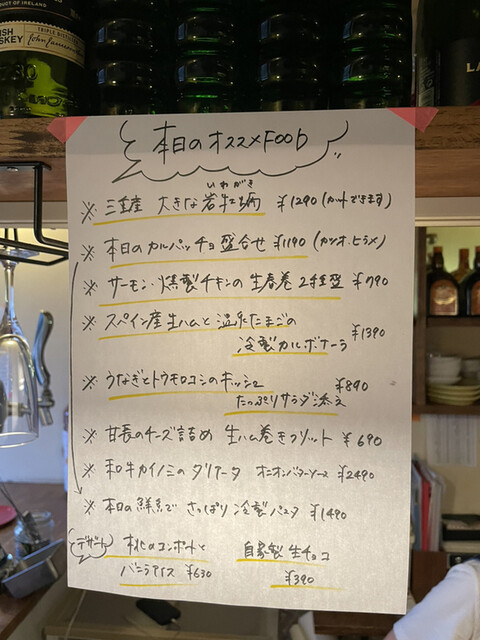 PRODUCT OF IRELAND
TRIPLE DISTILLED
John Jameson
本日のオススメFOOD
いわがき
※ 三重産 大きな岩牡蠣 ¥1290 (カットできます)
※ 本日のカルパッチョ盛合せ ¥1190 (カツオ、ヒラメ)
※ サーモン・燻製チキンの生春巻 2種盛 ¥790
※ スペイン産生ハムと温泉たまごの
冷製カルボナーラ ¥1390
※ うなぎとトウモロコシのキッシュ ¥890
たっぷりサラダ添え
※ 甘長のチーズ詰め 生ハム巻きフリット ¥690
※ 和牛カイノミのタリアータ オニオンバターソース ¥2490
※ 本日の鮮魚で さっぱり冷製パスタ ¥1490
デザート
桃のコンポートと
バニラアイス ¥630
自家製生チョコ
¥390